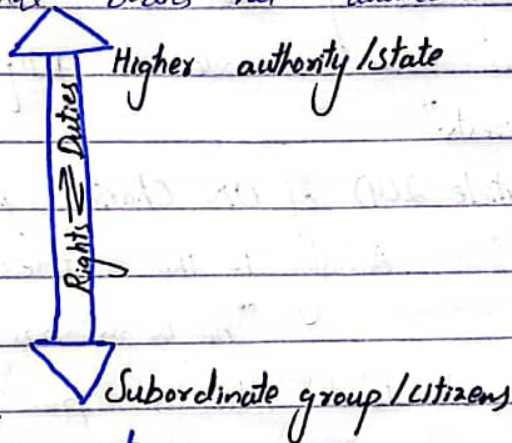 Higher authority/state
Rights ⇌ Duties
Subordinate group/citizens